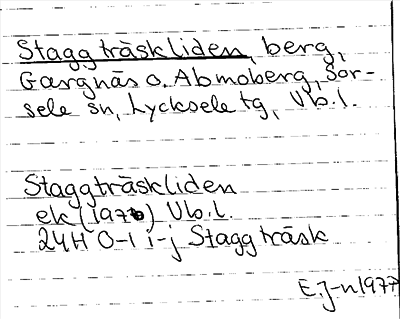 Staggträskliden, berg,
Gargnäs o. Abmoberg, Sor-
sele sn, Lycksele tg, Vb.l.
Staggträskliden
ek (1976) Vb.l.
24H 0-1 i-j Staggträsk
E.J-n 1977